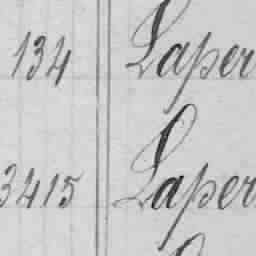 134 Laper
3415 Laper